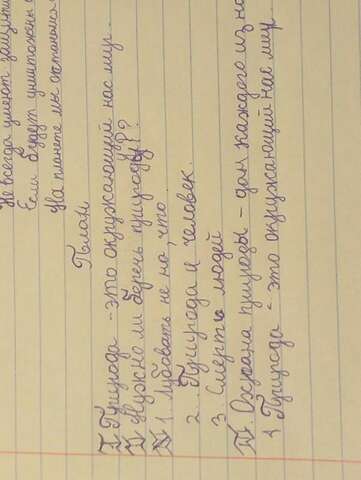 Не всегда умеют защити
Если будет уничтожены
На планете мы останемся
План
I Природа - это окружающий нас мир.
II Нужно ли беречь природу?
III 1. Любовать не но, что
2. Природа и человек.
3. Смерть людей
IV. Охрана природы - дом каждого из на
1 Природа - это окружающий нас мир.